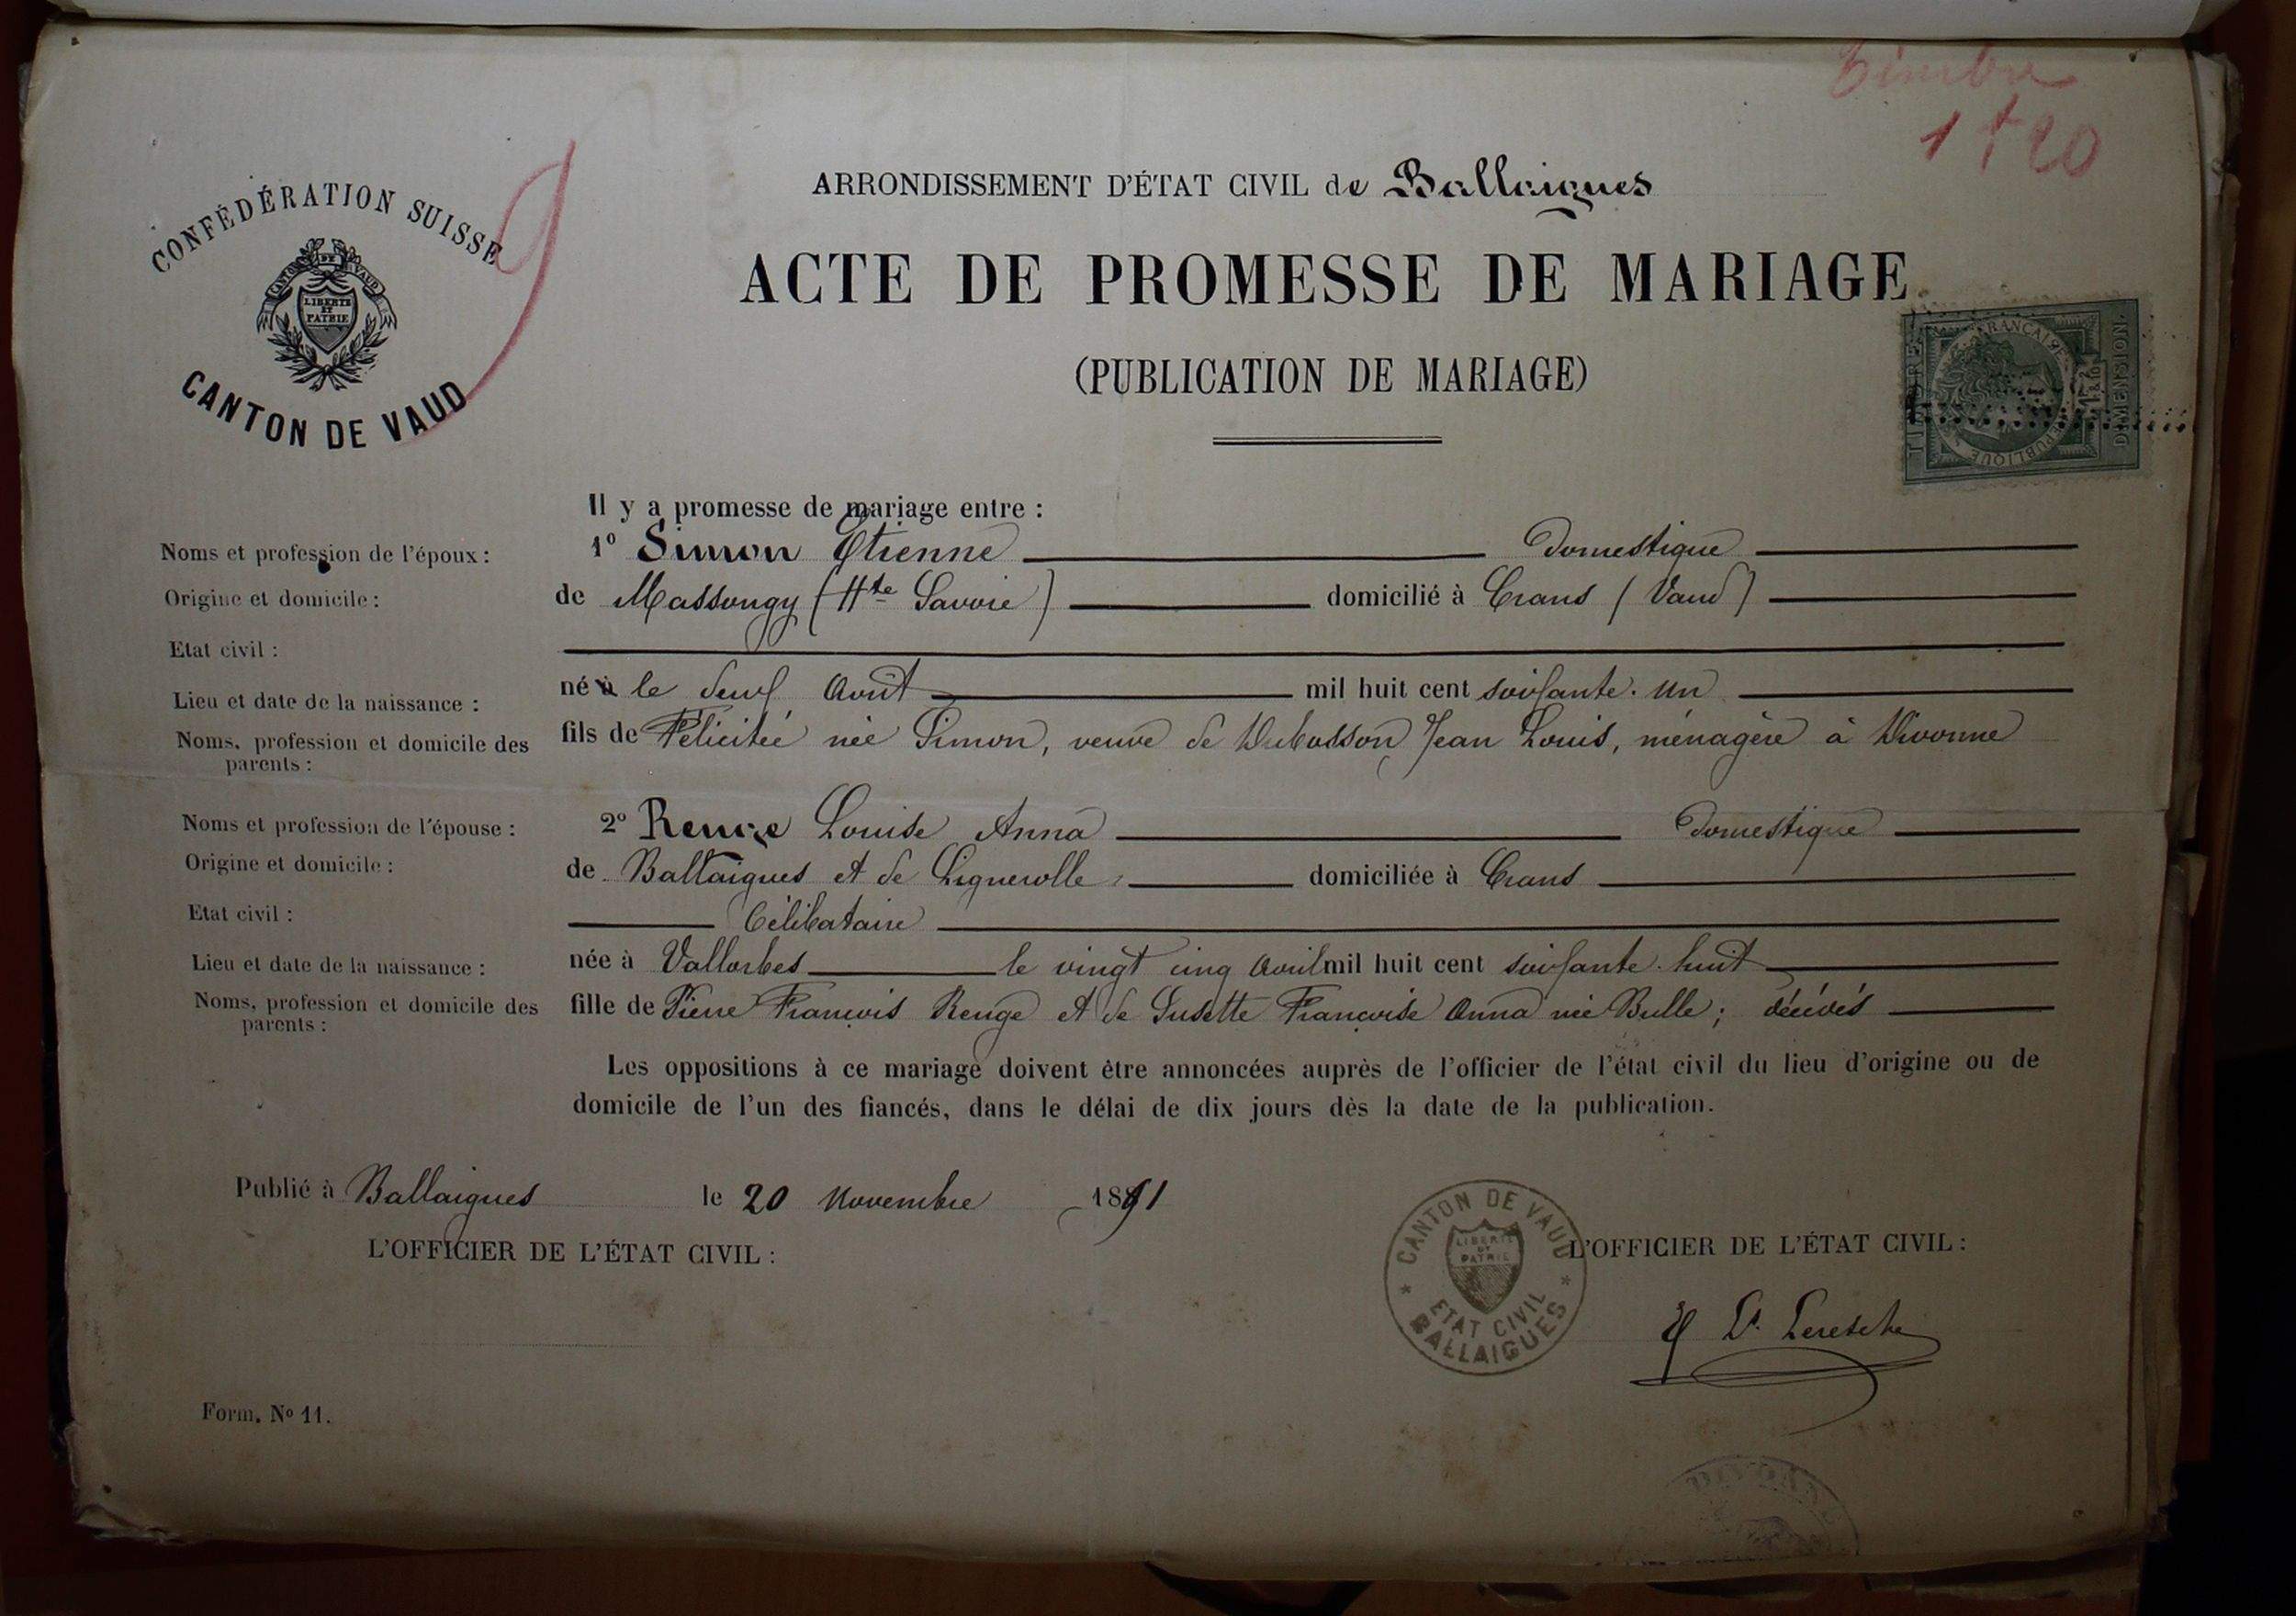 Timbre
1f 20
CONFÉDÉRATION SUISSE
CANTON DE VAUD
LIBERTÉ
ET
PATRIE
CANTON DE VAUD
ARRONDISSEMENT D'ÉTAT CIVIL de Ballaigues
ACTE DE PROMESSE DE MARIAGE
(PUBLICATION DE MARIAGE)
FRANÇAISE
RÉPUBLIQUE
DIMENSION.
Il y a promesse de mariage entre :
Noms et profession de l'époux : 1º Simon Etienne Domestique
Origine et domicile : de Massongy (Hte Savoie) domicilié à Crans (Vaud)
Etat civil :
Lieu et date de la naissance : né à le deux Août mil huit cent soixante-un
Noms, profession et domicile des parents : fils de Félicitée née Simon, veuve de Dubosson, Jean Louis, ménagère à Divonne
Noms et profession de l'épouse : 2º Renge Louise Anna Domestique
Origine et domicile : de Ballaigues et de Lignerolle, domiciliée à Crans
Etat civil : Célibataire
Lieu et date de la naissance : née à Vallorbes le vingt cinq Avril mil huit cent soixante-huit
Noms, profession et domicile des parents : fille de Pierre François Renge et de Susette Françoise Anna née Bulle ; décédés
Les oppositions à ce mariage doivent être annoncées auprès de l'officier de l'état civil du lieu d'origine ou de
domicile de l'un des fiancés, dans le délai de dix jours dès la date de la publication.
Publié à Ballaigues le 20 Novembre 1891
L'OFFICIER DE L'ÉTAT CIVIL :
L'OFFICIER DE L'ÉTAT CIVIL :
CANTON DE VAUD
LIBERTÉ
ET
PATRIE
ETAT CIVIL
BALLAIGUES
Leresche
Form. Nº 11.